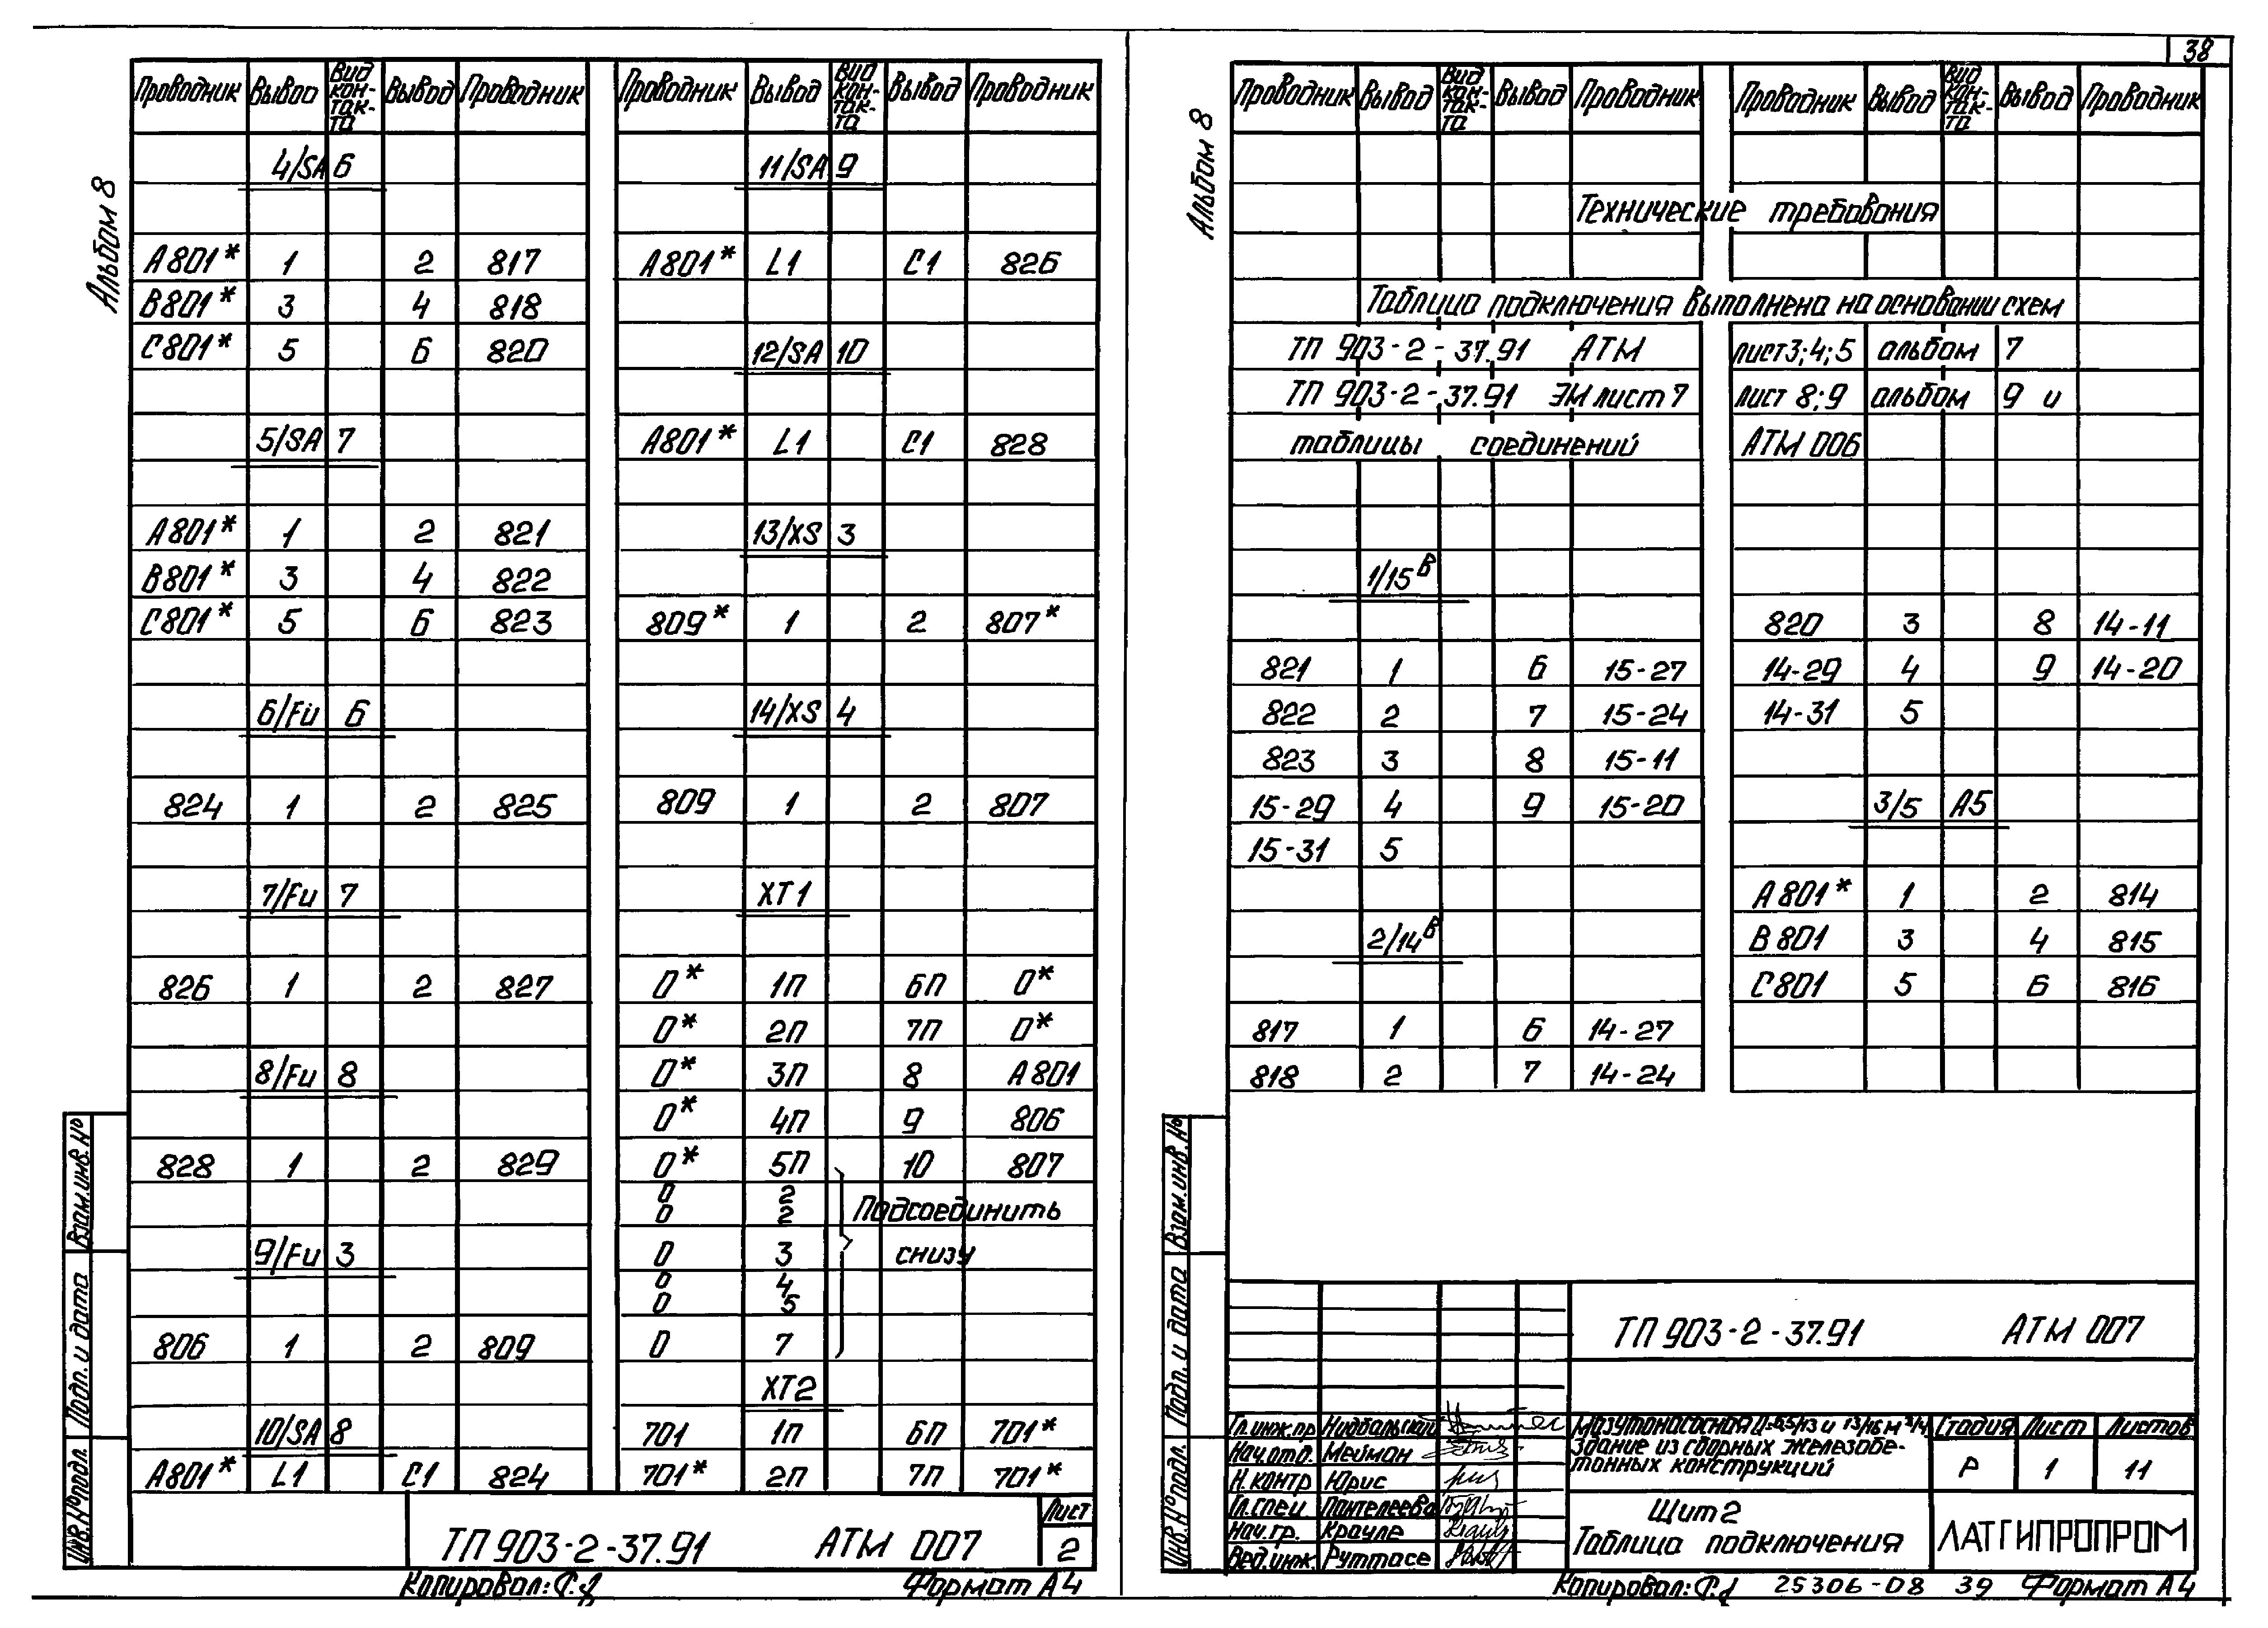 38
Альбом 8
Проводник Вывод Вид кон-так-та Вывод Проводник
4/SA 6
А801* 1 2 817
В801* 3 4 818
С801* 5 6 820
5/SA 7
А801* 1 2 821
В801* 3 4 822
С801* 5 6 823
6/Fu 6
824 1 2 825
7/Fu 7
826 1 2 827
8/Fu 8
828 1 2 829
9/Fu 3
806 1 2 809
10/SA 8
А801* L1 С1 824
Проводник Вывод Вид кон-так-та Вывод Проводник
11/SA 9
А801* L1 С1 826
12/SA 10
А801* L1 С1 828
13/XS 3
809* 1 2 807*
14/XS 4
809 1 2 807
ХТ1
0* 1П 6П 0*
0* 2П 7П 0*
0* 3П 8 А801
0* 4П 9 806
0* 5П 10 807
0 2
0 2
Подсоединить
0 3 снизу
0 4
0 5
0 7
ХТ2
701 1П 6П 701*
701* 2П 7П 701*
Взам.инв.№
Подп. и дата
Инв.№подл.
ТП 903-2-37.91 АТМ 007
Лист
2
Копировал: Формат А4
Альбом 8
Проводник Вывод Вид кон-так-та Вывод Проводник
Проводник Вывод Вид кон-так-та Вывод Проводник
Технические требования
Таблица подключения выполнена на основании схем
ТП 903-2-37.91 АТМ лист3;4;5 альбом 7
ТП 903-2-37.91 ЭМ лист 7 лист 8;9 альбом 9 и
таблицы соединений АТМ 006
1/15В
821 1 6 15-27
822 2 7 15-24
823 3 8 15-11
15-29 4 9 15-20
15-31 5
2/14В
817 1 6 14-27
818 2 7 14-24
820 3 8 14-11
14-29 4 9 14-20
14-31 5
3/5 А5
А801* 1 2 814
В801 3 4 815
С801 5 6 816
Взам.инв.№
Подп. и дата
Инв.№подл.
ТП 903-2-37.91 АТМ 007
Гл.инж.пр Нидбальский
Нач.отд. Мейман
Н.контр Юрис
Гл.спец. Пантелеева
Нач.гр. Крауле
Вед.инж. Руттасе
Мазутонасосная и 13/16 м³/ч
Здание из сборных железобе-
тонных конструкций
Стадия Лист Листов
Р 1 11
Щит 2
Таблица подключения
ЛАТГИПРОПРОМ
Копировал: 25306-08 39 Формат А4